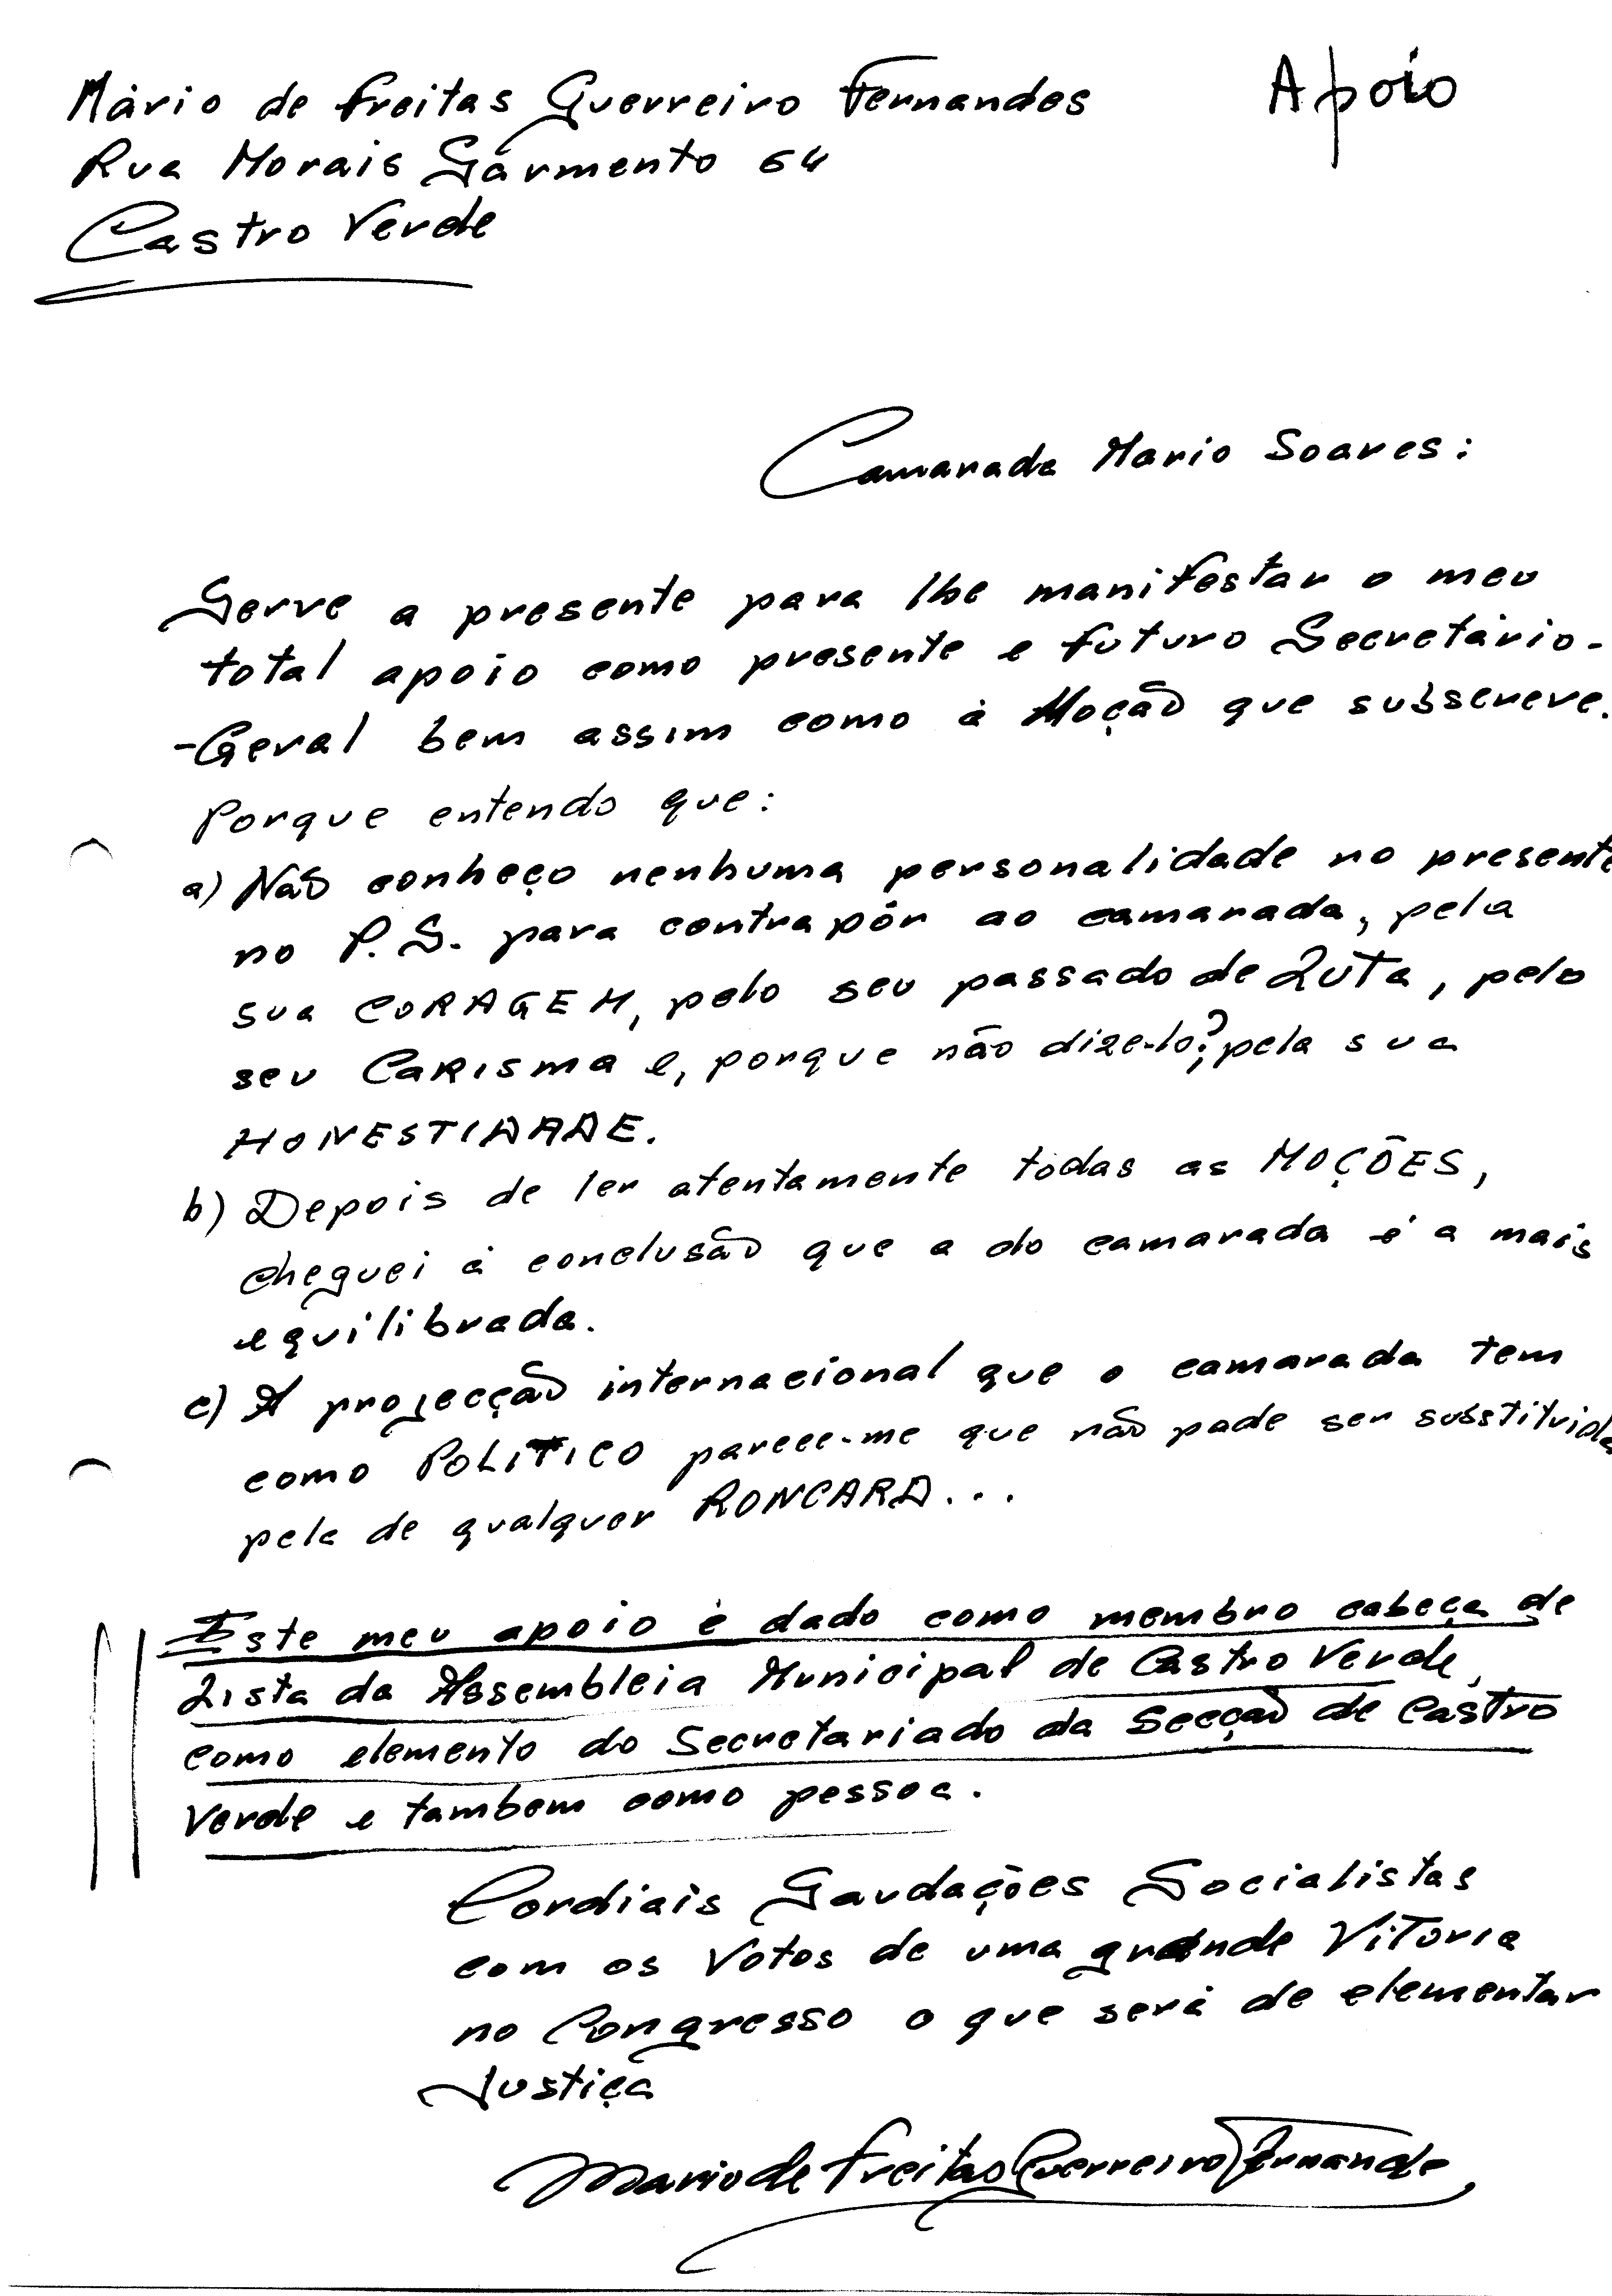 Mário de Freitas Guerreiro Fernandes
Apoio
Rua Morais Sarmento 64
Castro Verde
Camarada Mario Soares:
Serve a presente para lhe manifestar o meu
total apoio como presente e futuro Secretário-
-Geral bem assim como à Moção que subscreve.
Porque entendo que:
a) Não conheço nenhuma personalidade no presente
no P.S. para contrapôr ao camarada, pela
sua CORAGEM, pelo seu passado de LUTA, pelo
seu CARISMA e, porque não dize-lo?, pela sua
HONESTIDADE.
b) Depois de ler atentamente todas as MOÇÕES,
cheguei à conclusão que a do camarada é a mais
equilibrada.
c) A projecção internacional que o camarada tem
como POLITICO parece-me que não pode ser substituida
pela de qualquer RONCARA...
Este meu apoio é dado como membro cabeça de
Lista da Assembleia Municipal de Castro Verde,
como elemento do Secretariado da Secção de Castro
Verde e tambem como pessoa.
Cordiais Saudações Socialistas
com os Votos de uma grande Vitoria
no Congresso o que será de elementar
Justiça
Mario de Freitas Guerreiro Fernandes